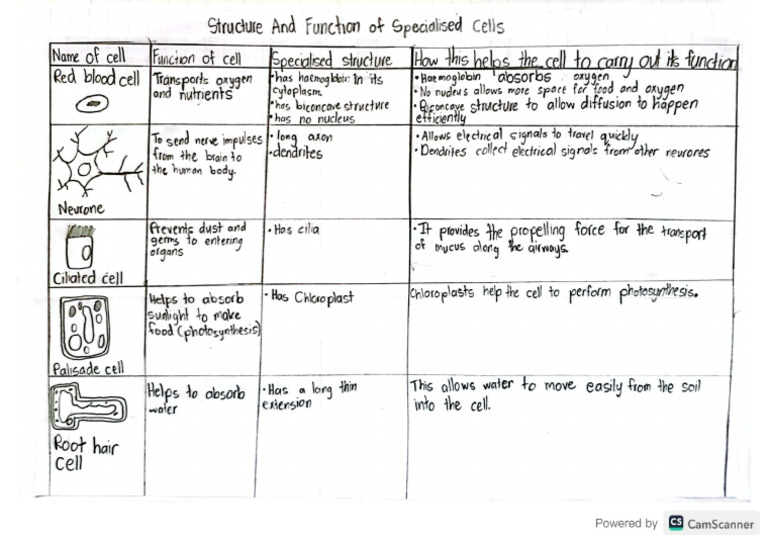 Structure And Function of Specialised Cells
Name of cell
Function of cell
Specialised structure
How this helps the cell to carry out its function
Red blood cell
Transports oxygen
and nutrients
•has haemoglobin in its
cytoplasm
•has biconcave structure
•has no nucleus
•Haemoglobin absorbs oxygen
•No nucleus allows more space for food and oxygen
•Biconcave structure to allow diffusion to happen
efficiently
Neurone
To send nerve impulses
from the brain to
the human body.
•long axon
•dendrites
•Allows electrical signals to travel quickly
•Dendrites collect electrical signals from other neurones
Ciliated cell
Prevents dust and
germs to entering
organs
•Has cilia
•It provides the propelling force for the transport
of mucus along the airways.
Palisade cell
Helps to absorb
sunlight to make
food (photosynthesis)
•Has Chloroplast
Chloroplasts help the cell to perform photosynthesis.
Root hair
cell
Helps to absorb
water
•Has a long thin
extension
This allows water to move easily from the soil
into the cell.
Powered by CS CamScanner